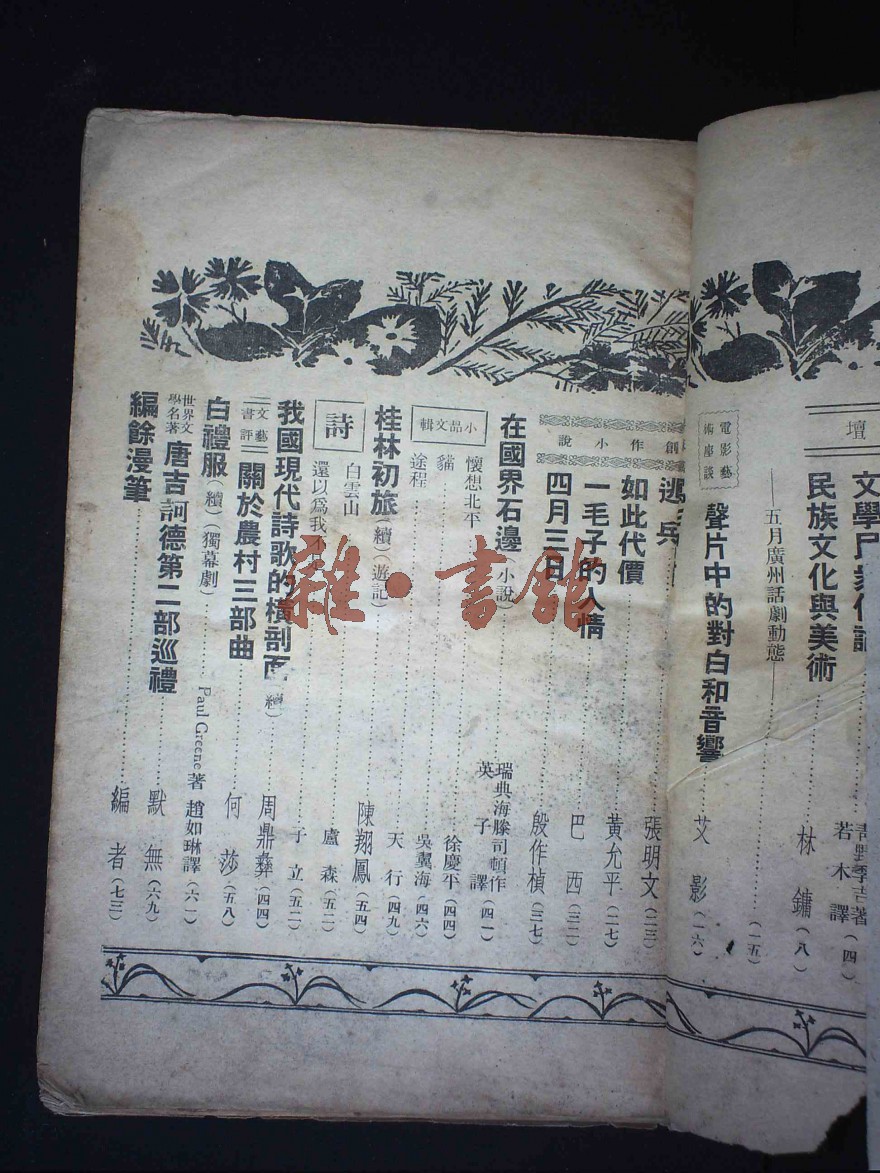 壇
民族文化與美術
林鏞(八)
——五月廣州話劇動態——
(一五)
電影藝術座談
聲片中的對白和音響
艾影(一六)
青野季吉著
若木譯(四)
創作小說
逃兵
張明文(二三)
如此代價
黃允平(二七)
一毛子的人情
巴西(三二)
四月三日
殷作楨(三七)
在國界石邊(小說)
瑞典海滕司頓作
英子譯(四一)
小品文輯
懷想北平
徐慶平(四四)
貓
吳翼海(四六)
途程
天行(四九)
桂林初旅(續)(遊記)
陳翔鳳(五四)
詩
白雲山
盧森(五二)
還以為我
于立(五二)
我國現代詩歌的橫剖面(續)
周鼎彝(四四)
文藝書評
關於農村三部曲
何莎(五八)
白禮服(續)(獨幕劇)
Paul Greene著 趙如琳譯(六一)
世界文學名著
唐吉訶德第二部巡禮
默無(六九)
編餘漫筆
編者(七三)
雜·書館